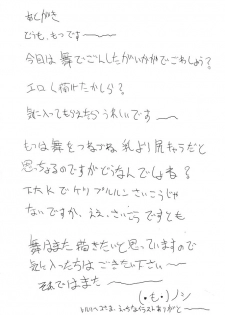 あとがき
どうも、もっです
今回は舞でごんしたがいかがでごわしょう？
エロく描けたかしら？
気に入ってもらえたらうれしいです
もは舞をつるつるね、乳より尻キャラだと
思っちょるのですがどうなんでしょね？
でケツプルルンさいこうじゃ
ないですか、ええ、さいこうですとも
舞はまた描きたいと思っていますので
気に入った方はごきたい下さい
それではまた
(・も・)ノシ